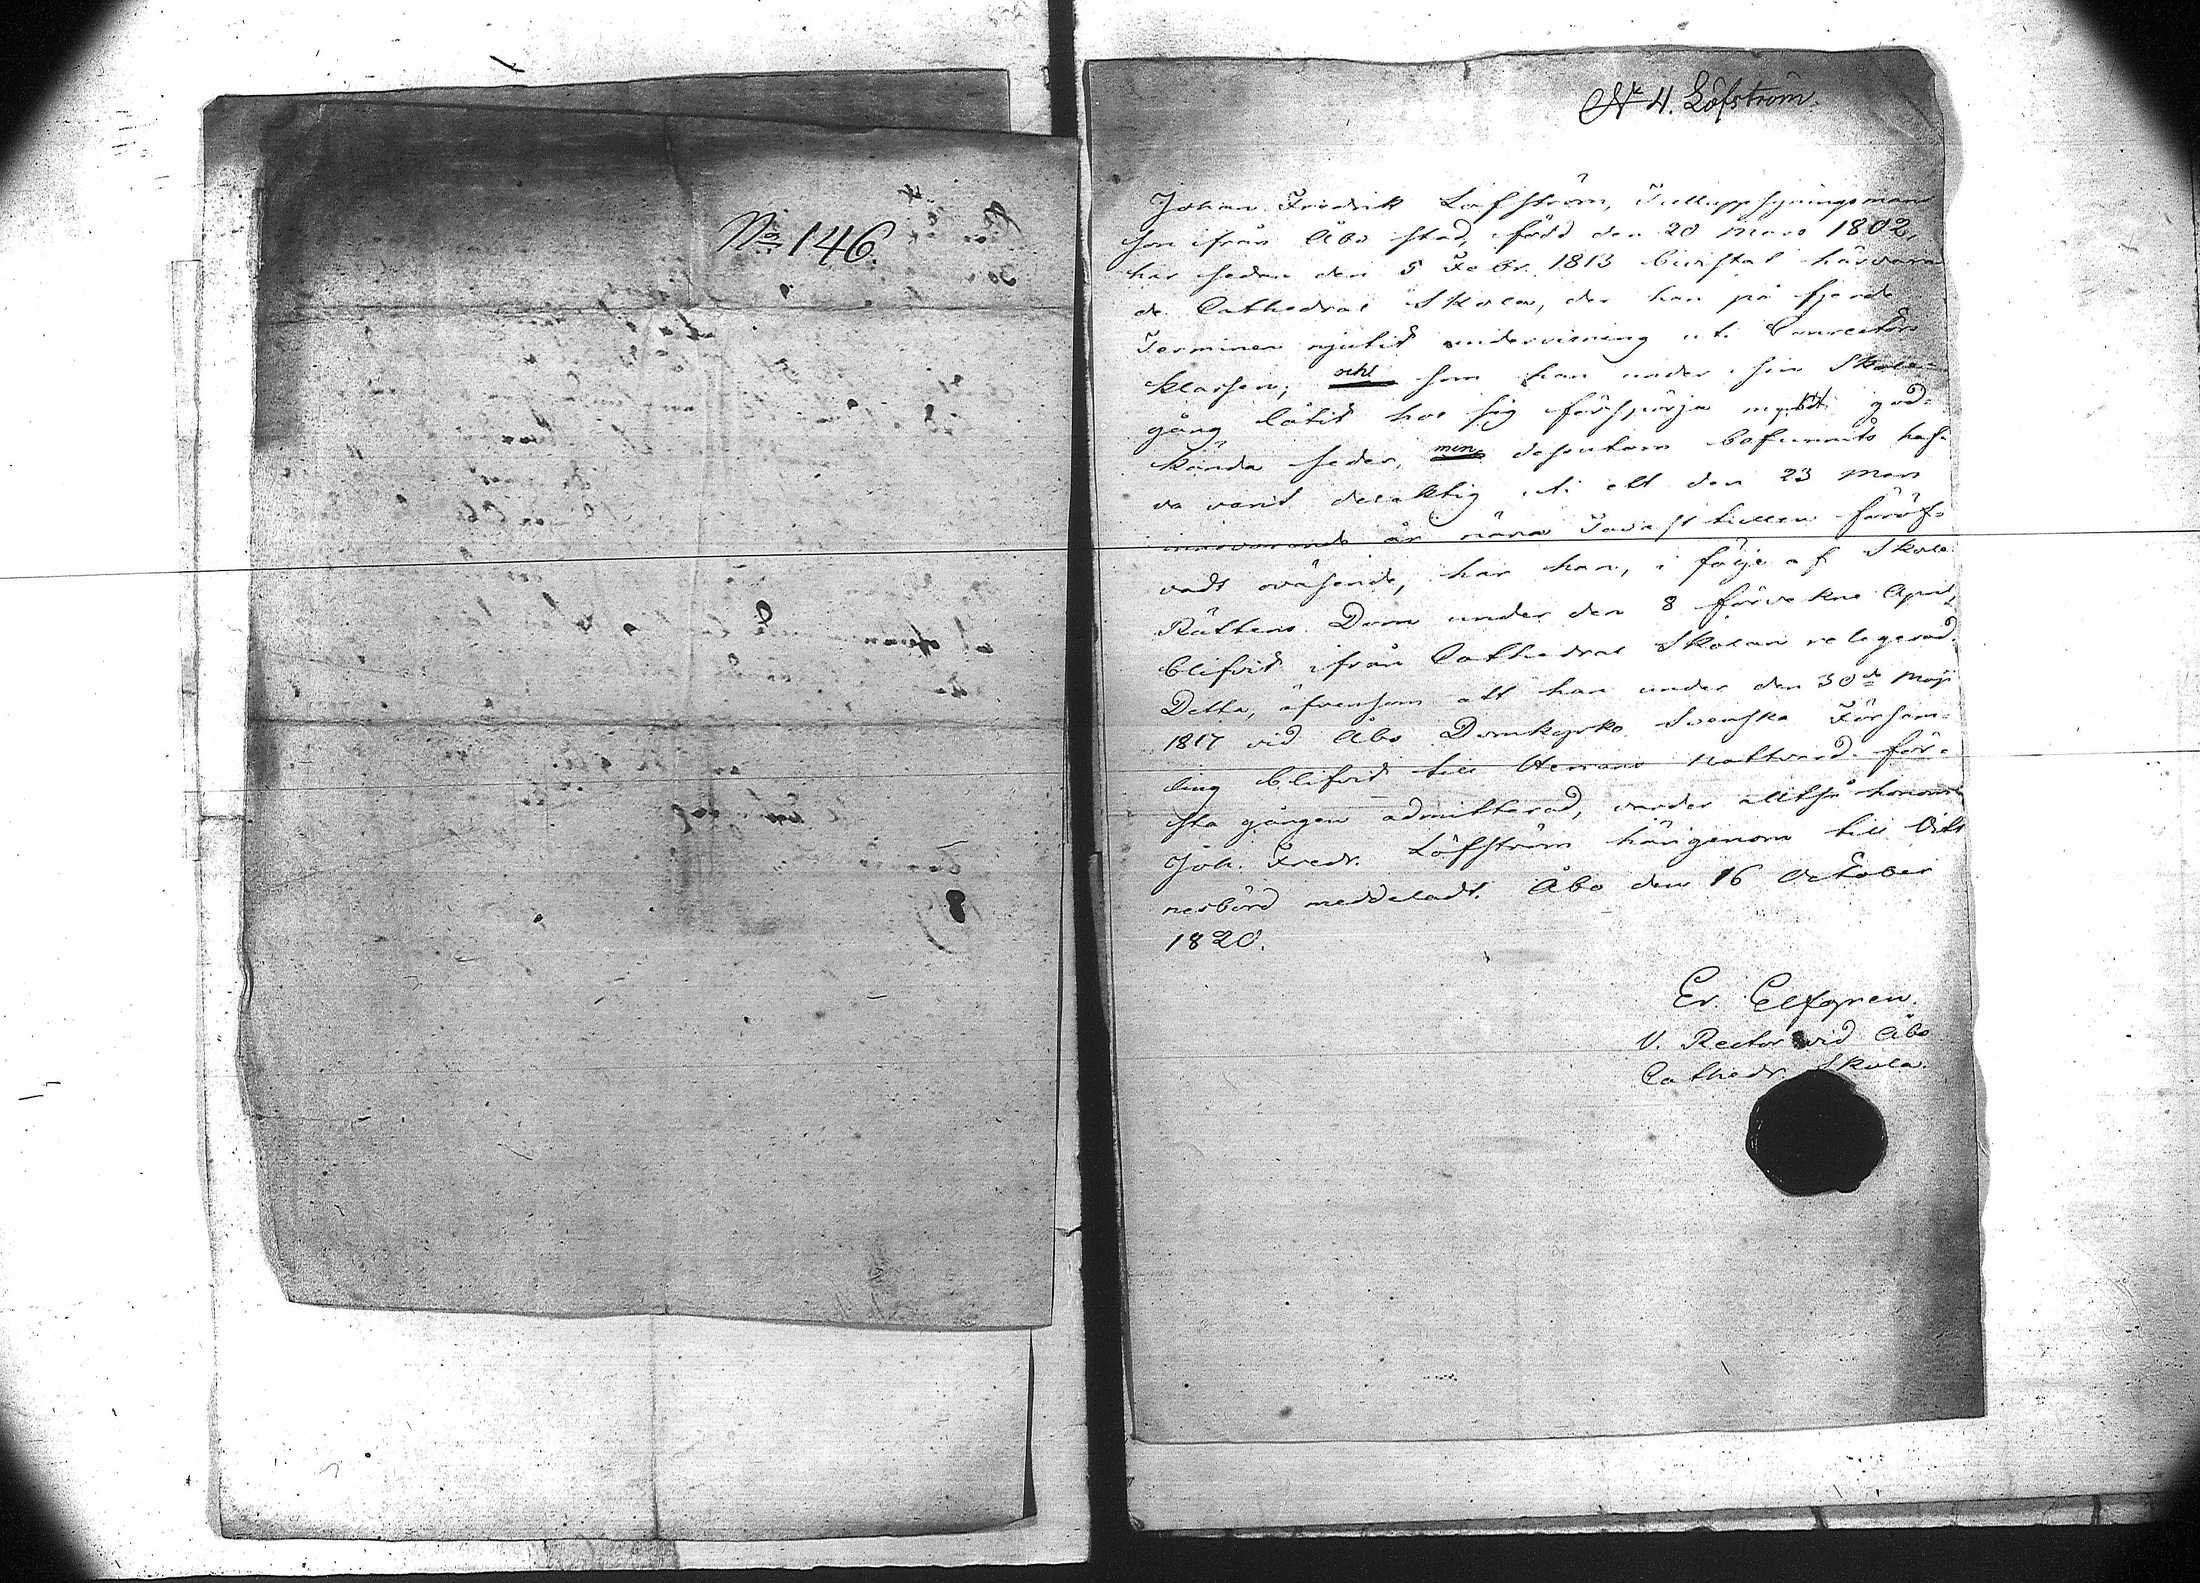 No 146.
N 4. Löfström.
Johan Fredrik Löfström, Tulluppsyningsmans
son ifrån Åbo stad, född den 20 Mars 1802,
har sedan den 5 Febr. 1813 bivistat härvaran
de Cathedral Skola, der han på fjerde
Terminen njutit undervisning uti Conrectors
klassen; och som han under sin Skole-
gång låtit hos sig förspörja mycket god-
kända seder, men dessutom befunnits haf-
va varit delaktig uti ett den 23 Mars
innevarande år nära Tavast tullen föröf-
vadt oväsende, har han, i följe af Skole
Rättens Dom under den 8 förvekne April,
blifvit ifrån Cathedral Skolan relegerad.
Detta, äfvensom att han under den 30de Maji
1817 vid Åbo Domkyrko Svenska Försam-
ling blifvit till Herrans Nattvard för-
sta gången admitterad, varder alltså honom
Joh. Fredr. Löfström härigenom till Vitt
nesbörd meddeladt. Åbo den 16 October
1820.
Er. Elfgren.
V. Rector vid Åbo
Cathedr. Skola.